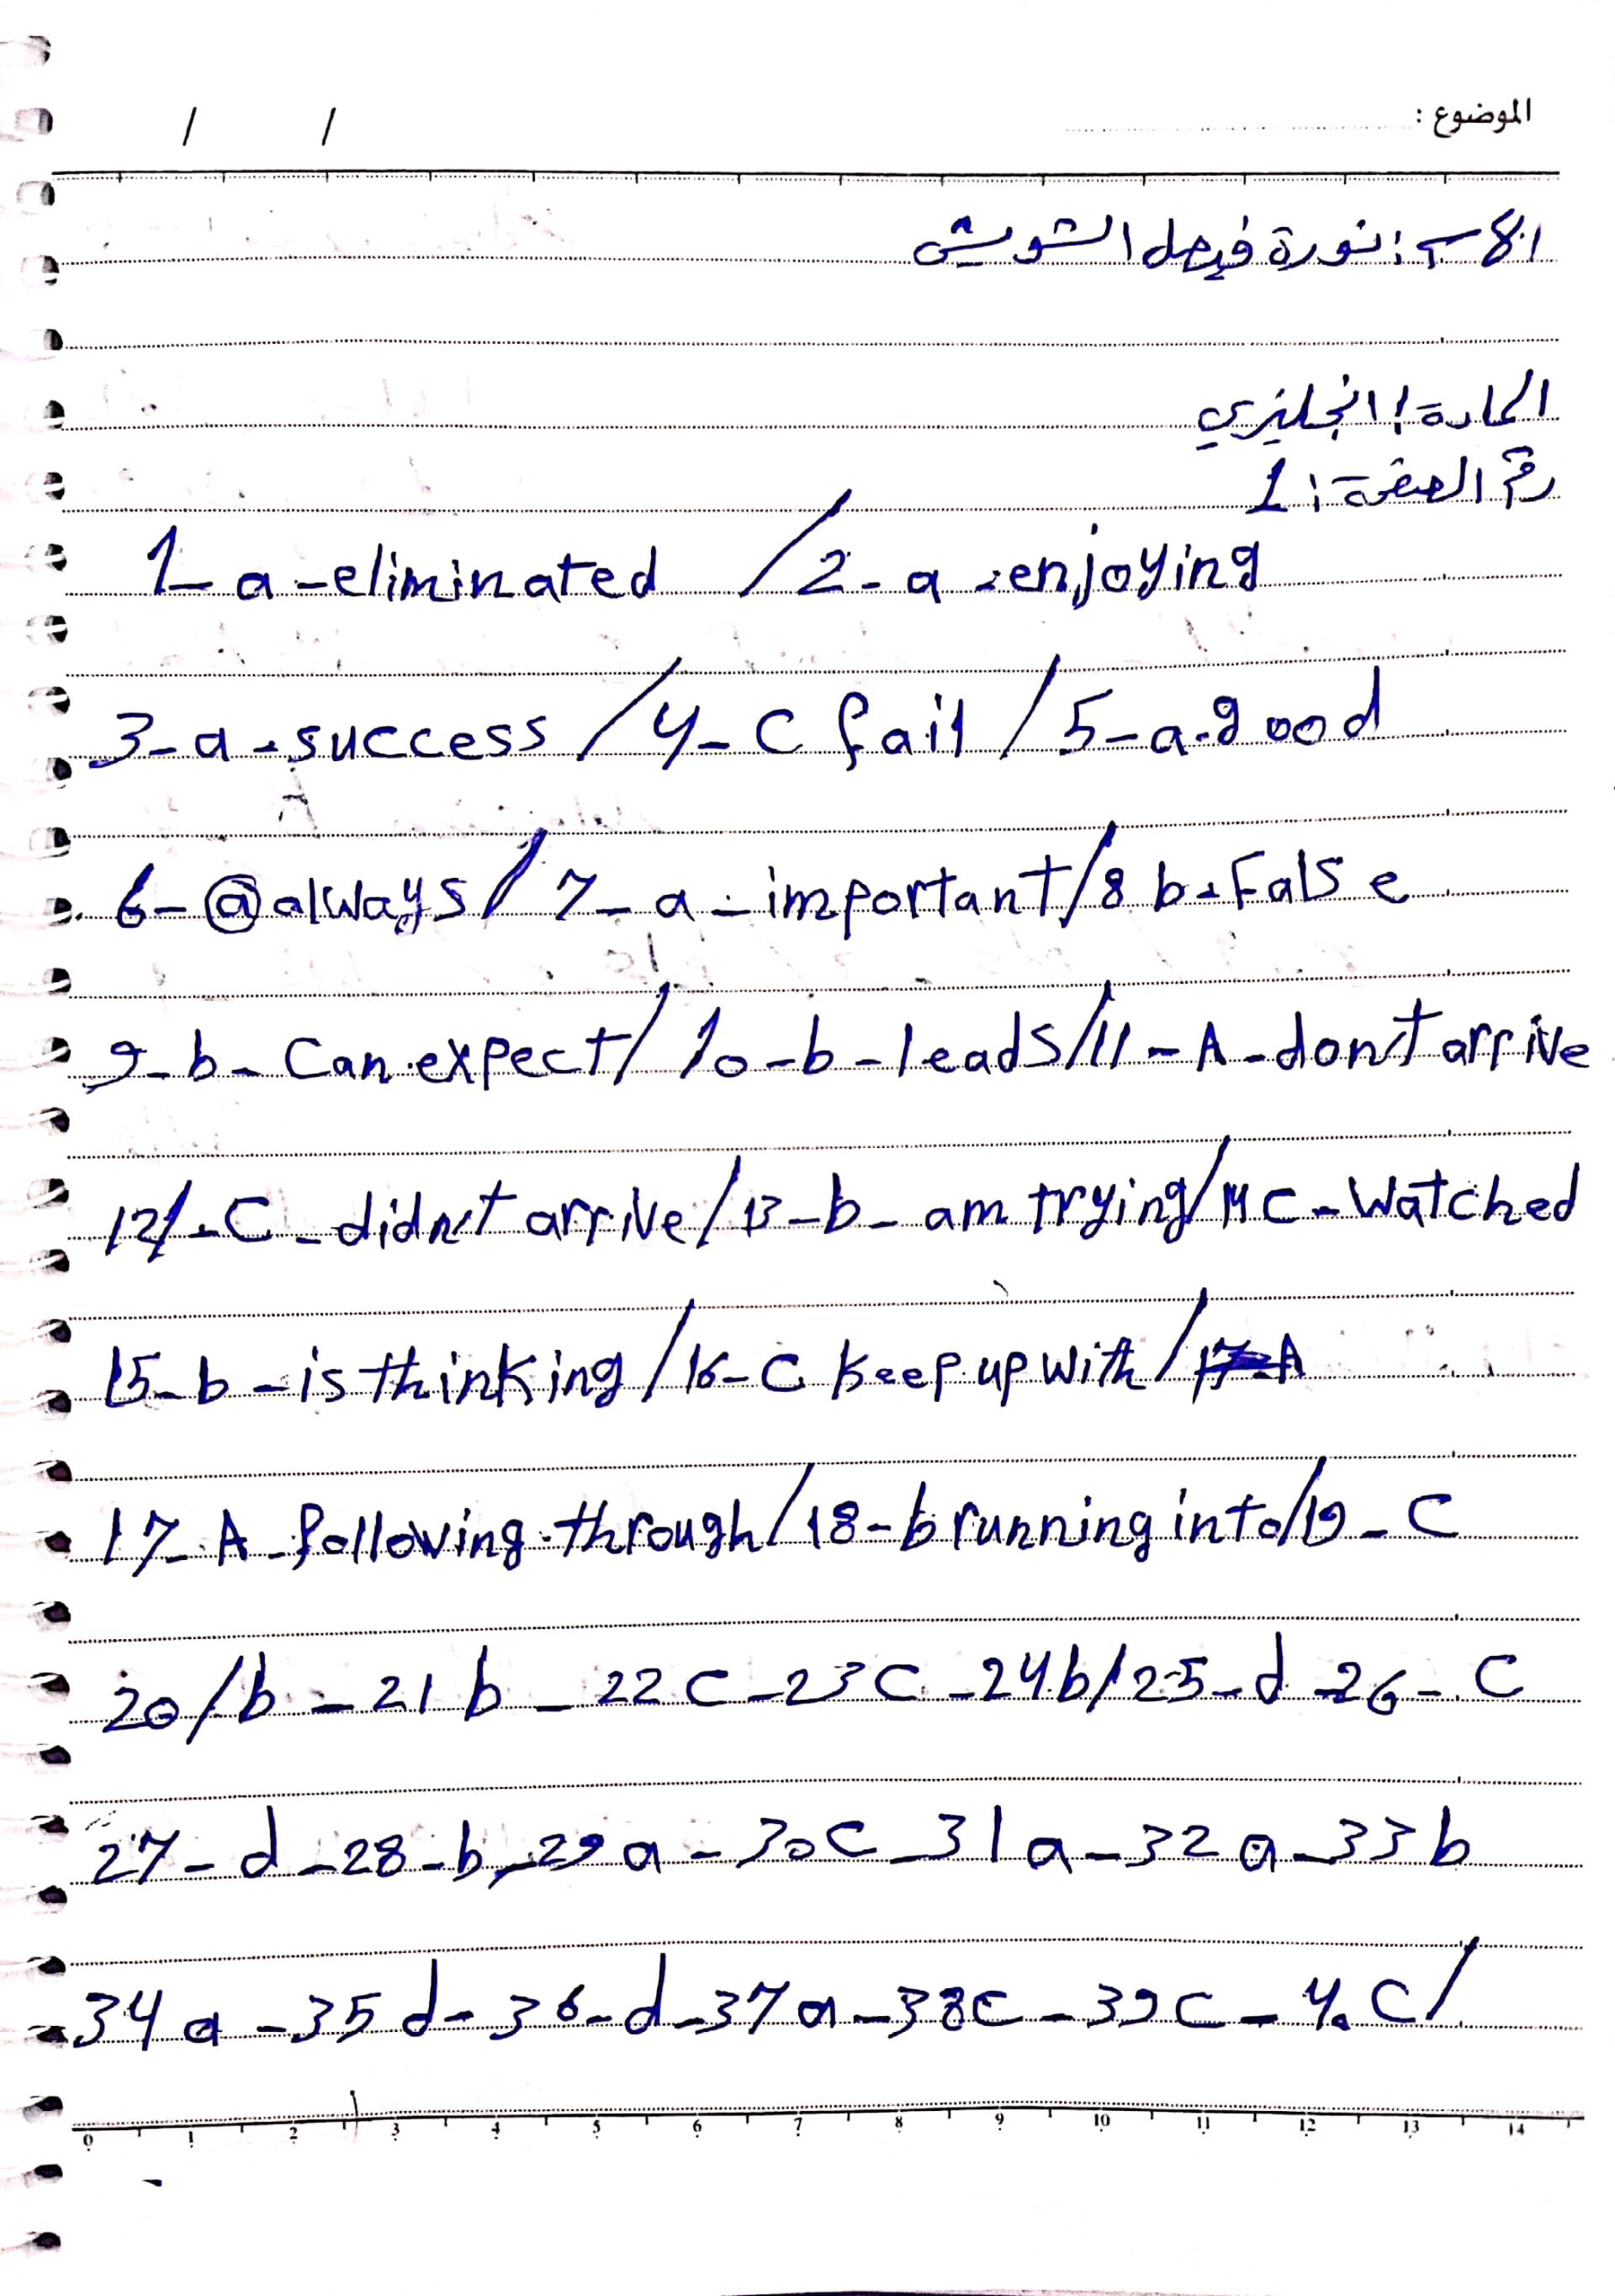 الموضوع :
/ /
الاسم : نورة فيصل الشويش
المادة : انجليزي
رقم الصفحة : 1
1- a - eliminated / 2- a - enjoying
3- a - success / 4- C fail / 5- a- good
6- @ always / 7- a - important / 8 b- False
9- b- Can expect / 10 - b - leads / 11 - A - don't arrive
12/- C - didn't arrive / 13 - b - am trying / 14 C - Watched
15- b - is thinking / 16- C keep up with /
17- A - following through / 18 - b running into / 19 - C
20 / b - 21 b - 22 C - 23 C - 24 b / 25 - d - 26 - C
27 - d - 28 - b - 29 a - 30 C - 31 a - 32 a - 33 b
- 34 a - 35 d - 36 - d - 37 a - 38 C - 39 C - 40 C /
0 1 2 3 4 5 6 7 8 9 10 11 12 13 14